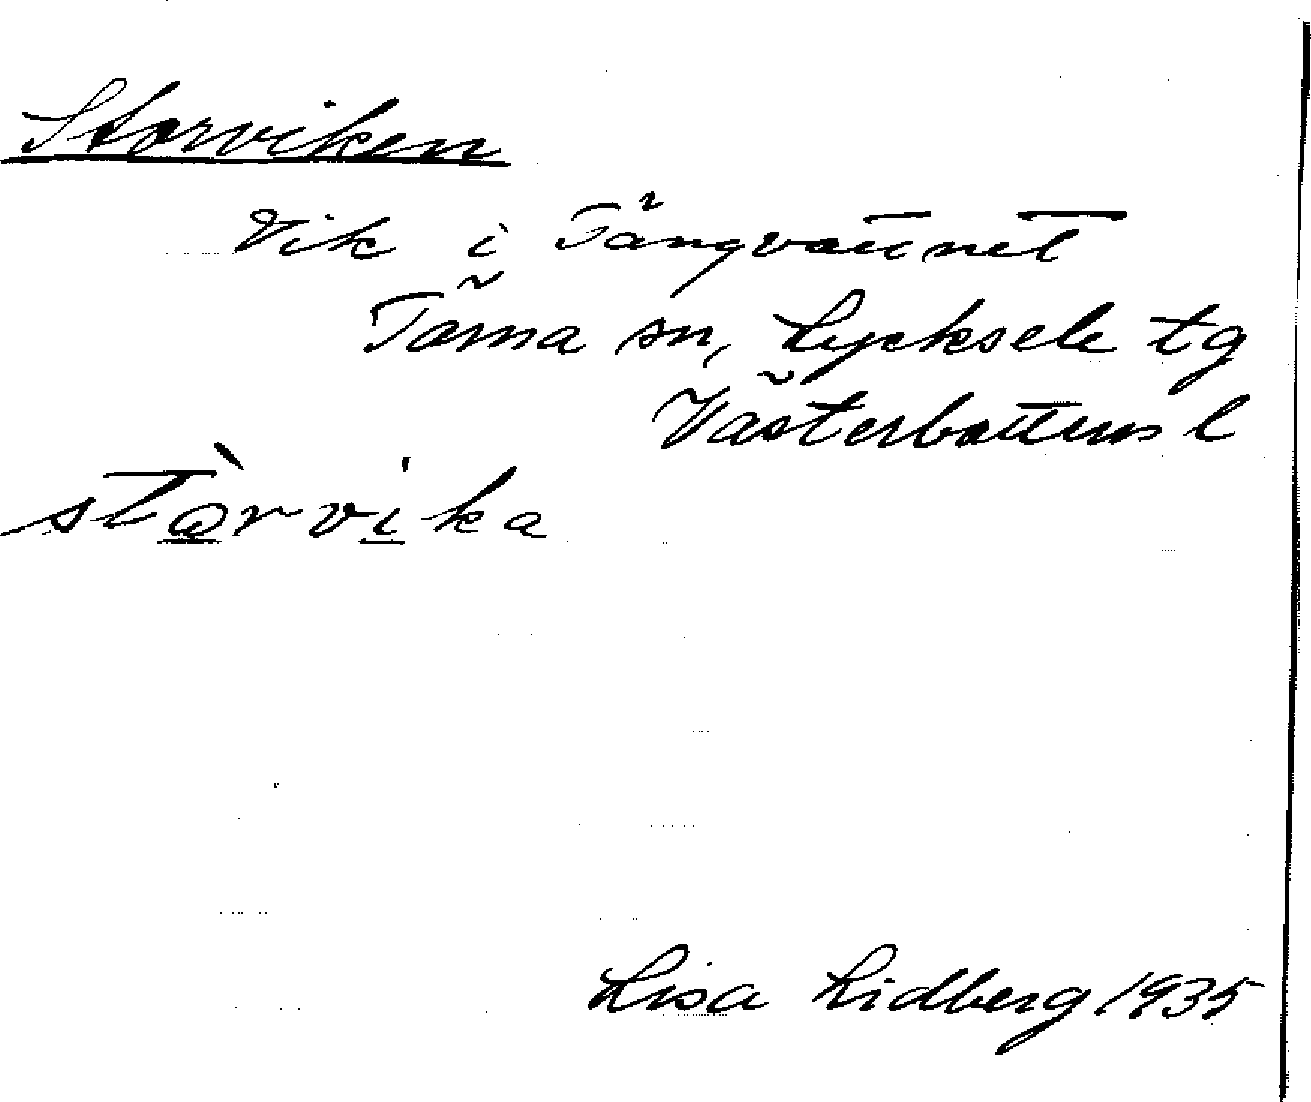 Storviken
Vik i Tångvattnet
Tärna sn, Lycksele tg
Västerbottens l
stòrvika
Lisa Lidberg 1935